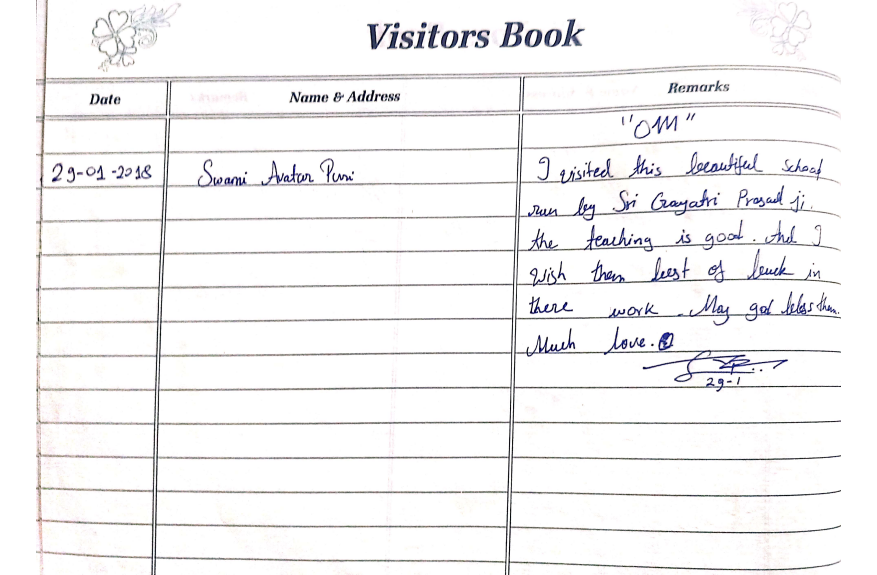 Visitors Book
Date Name & Address Remarks
"OM"
29-01-2018 Swami Avatar Puri I visited this beautiful school
run by Sri Gayatri Prasad ji.
the teaching is good. And I
wish them best of luck in
there work. May god bless them.
Much love.
29-1